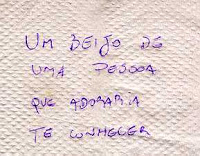 UM BEIJO DE
UMA PESSOA
QUE ADORARIA
TE CONHECER